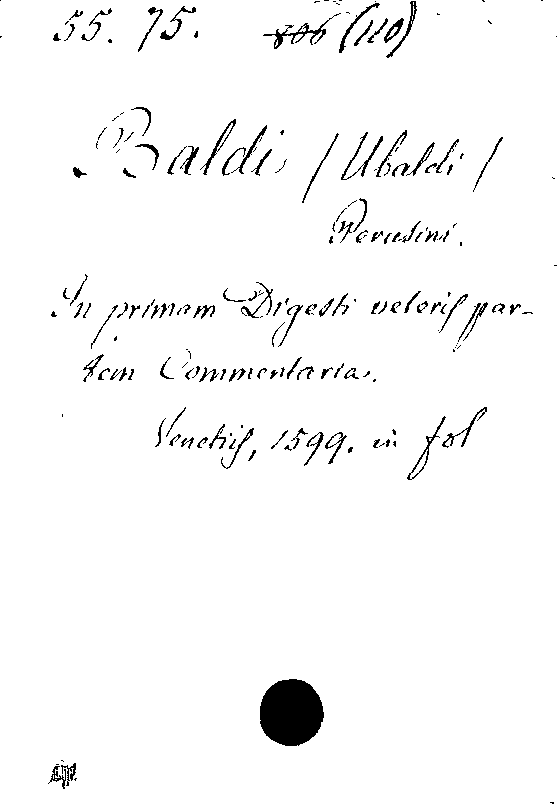 55. 75. 806 (110)
Baldi, / Ubaldi /
Perusini.
In primam Digesti veteris par-
tem Commentaria.
Venetiis, 1599. in fol